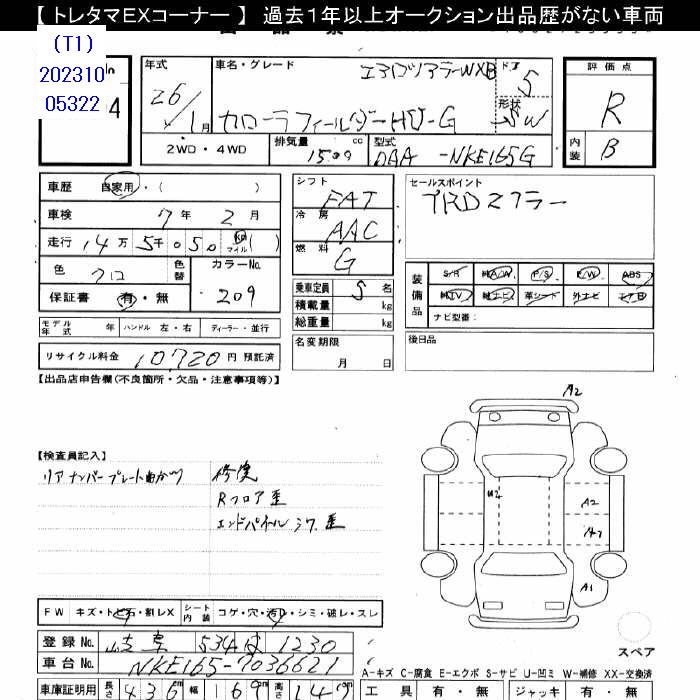 【 トレタマEXコーナー 】 過去1年以上オークション出品歴がない車両
(T1)
202310
05322
4
年式
26/1月
車名・グレード
エアロツアラーWXB
カローラフィールダーHV-G
ドア
5
形状
SW
評価点
R
内装
B
2WD・4WD
排気量
1500 cc
型式
DAA -NKE165G
車歴 自家用・( )
車検 7年 2月
走行 14万 5千 050 km マイル( )
色 クロ 色替
カラーNo. 209
保証書 有・無
シフト FAT
冷房 AAC
燃料 G
乗車定員 5 名
積載量 kg
総重量 kg
セールスポイント
TRDマフラー
装備品
S/R 純A/A P/S P/W ABS
純TV 純ナビ 革シート 外ナビ エアB
ナビ型番:
モデル年式 年 ハンドル 左・右 ディーラー・並行
リサイクル料金 10720 円 預託済
名変期限
月 日
後日品
【出品店申告欄(不良箇所・欠品・注意事項等)】
【検査員記入】
リアナンバープレート曲がり
修復
Rフロア歪
エンドパネル シワ 歪
A2
U2
A2
A1
スペア
FW キズ・トビ石・割レX シート内装 コゲ・穴・汚レ・シミ・破レ・スレ
登録No. 534 は 1230
車台No. NKE165-7036621
A-キズ C-腐食 E-エクボ S-サビ U-凹ミ W-補修 XX-交換済
車庫証明用 長さ 436cm 幅 169cm 高さ 149
工具 有・無 ジャッキ 有・無